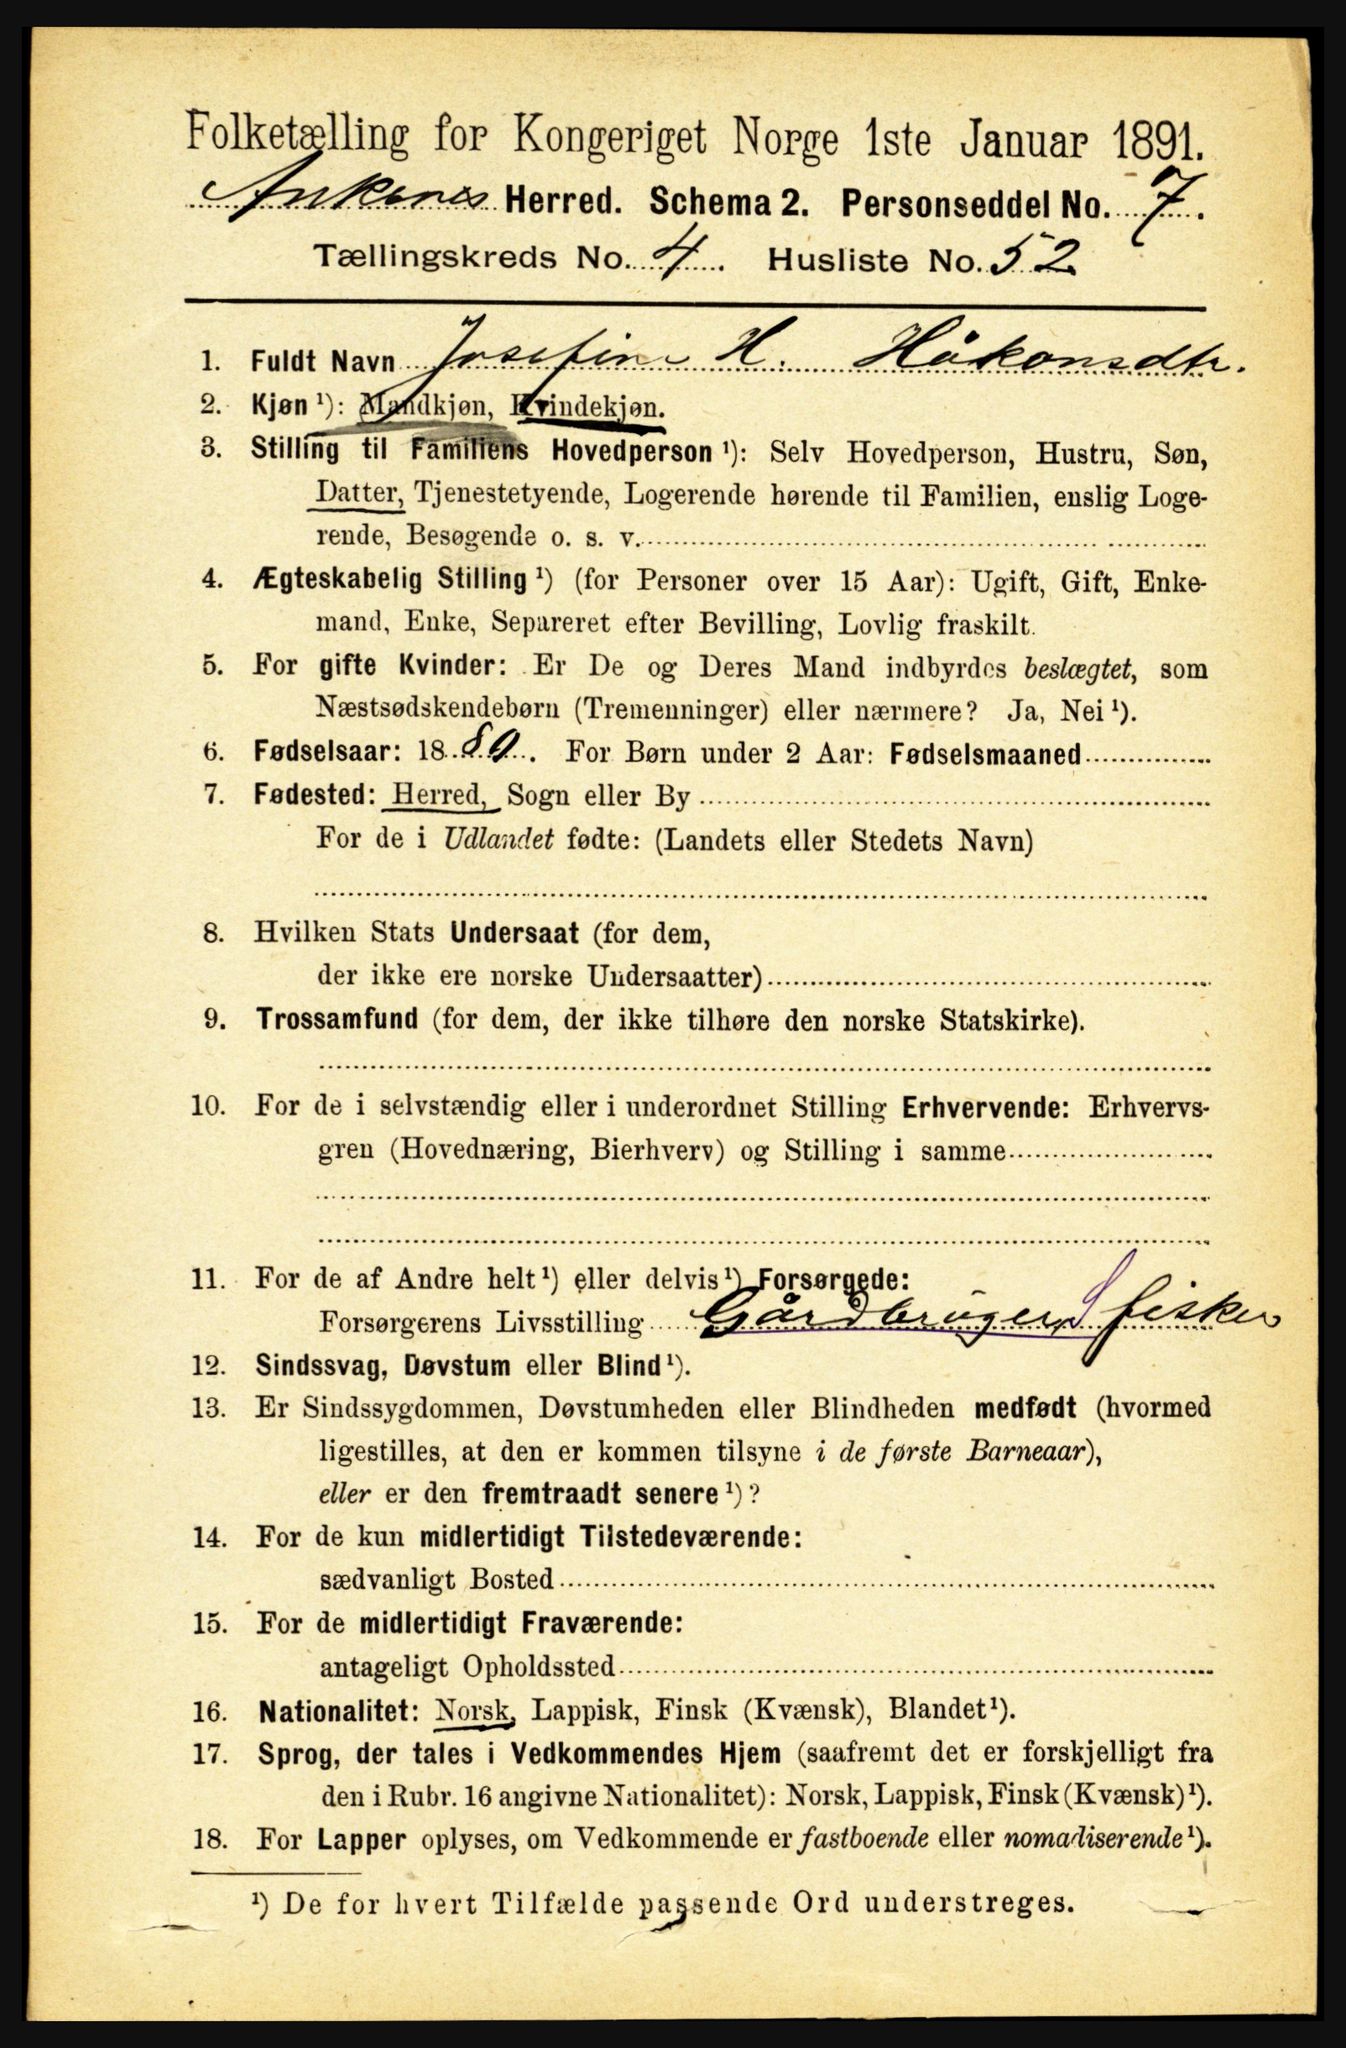 Folketælling for Kongeriget Norge 1ste Januar 1891.
Ankenes Herred. Schema 2. Personseddel No. 7.
Tællingskreds No. 4. Husliste No. 52
1. Fuldt Navn Josefine H. Håkonsdtr.
2. Kjøn ¹): Mandkjøn, Kvindekjøn.
3. Stilling til Familiens Hovedperson ¹): Selv Hovedperson, Hustru, Søn,
Datter, Tjenestetyende, Logerende hørende til Familien, enslig Loge-
rende, Besøgende o. s. v.
4. Ægteskabelig Stilling ¹) (for Personer over 15 Aar): Ugift, Gift, Enke-
mand, Enke, Separeret efter Bevilling, Lovlig fraskilt.
5. For gifte Kvinder: Er De og Deres Mand indbyrdes beslægtet, som
Næstsødskendebørn (Tremenninger) eller nærmere? Ja, Nei ¹).
6. Fødselsaar: 1889. For Børn under 2 Aar: Fødselsmaaned
7. Fødested: Herred, Sogn eller By
For de i Udlandet fødte: (Landets eller Stedets Navn)
8. Hvilken Stats Undersaat (for dem,
der ikke ere norske Undersaatter)
9. Trossamfund (for dem, der ikke tilhøre den norske Statskirke).
10. For de i selvstændig eller i underordnet Stilling Erhvervende: Erhvervs-
gren (Hovednæring, Bierhverv) og Stilling i samme
11. For de af Andre helt ¹) eller delvis ¹) Forsørgede:
Forsørgerens Livsstilling Gårdbruger S fisker
12. Sindssvag, Døvstum eller Blind ¹).
13. Er Sindssygdommen, Døvstumheden eller Blindheden medfødt (hvormed
ligestilles, at den er kommen tilsyne i de første Barneaar),
eller er den fremtraadt senere ¹)?
14. For de kun midlertidigt Tilstedeværende:
sædvanligt Bosted
15. For de midlertidigt Fraværende:
antageligt Opholdssted
16. Nationalitet: Norsk, Lappisk, Finsk (Kvænsk), Blandet ¹).
17. Sprog, der tales i Vedkommendes Hjem (saafremt det er forskjelligt fra
den i Rubr. 16 angivne Nationalitet): Norsk, Lappisk, Finsk (Kvænsk) ¹).
18. For Lapper oplyses, om Vedkommende er fastboende eller nomadiserende ¹).
¹) De for hvert Tilfælde passende Ord understreges.